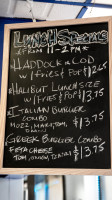 LUNCH SPECIALS
11AM - 2PM
HADDOCK or COD
w/fries & POP $12.65
HALIBUT LUNCH SIZE
w/fries & POP $13.75
ITALIAN BURGER
COMBO
MOZZ, MARA, TOM, $13.75
ONION
GREEK BURGER COMBO
FETA CHEESE
TOM, ONION, TZATZIKI $13.75